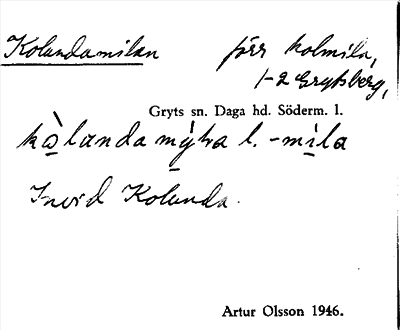 Kolundamilan förr kolmila,
1-2 Grytsberg,
Gryts sn. Daga hd. Söderm. l.
kòlunda mýtra l. -mila
Invid Kolunda.
Artur Olsson 1946.